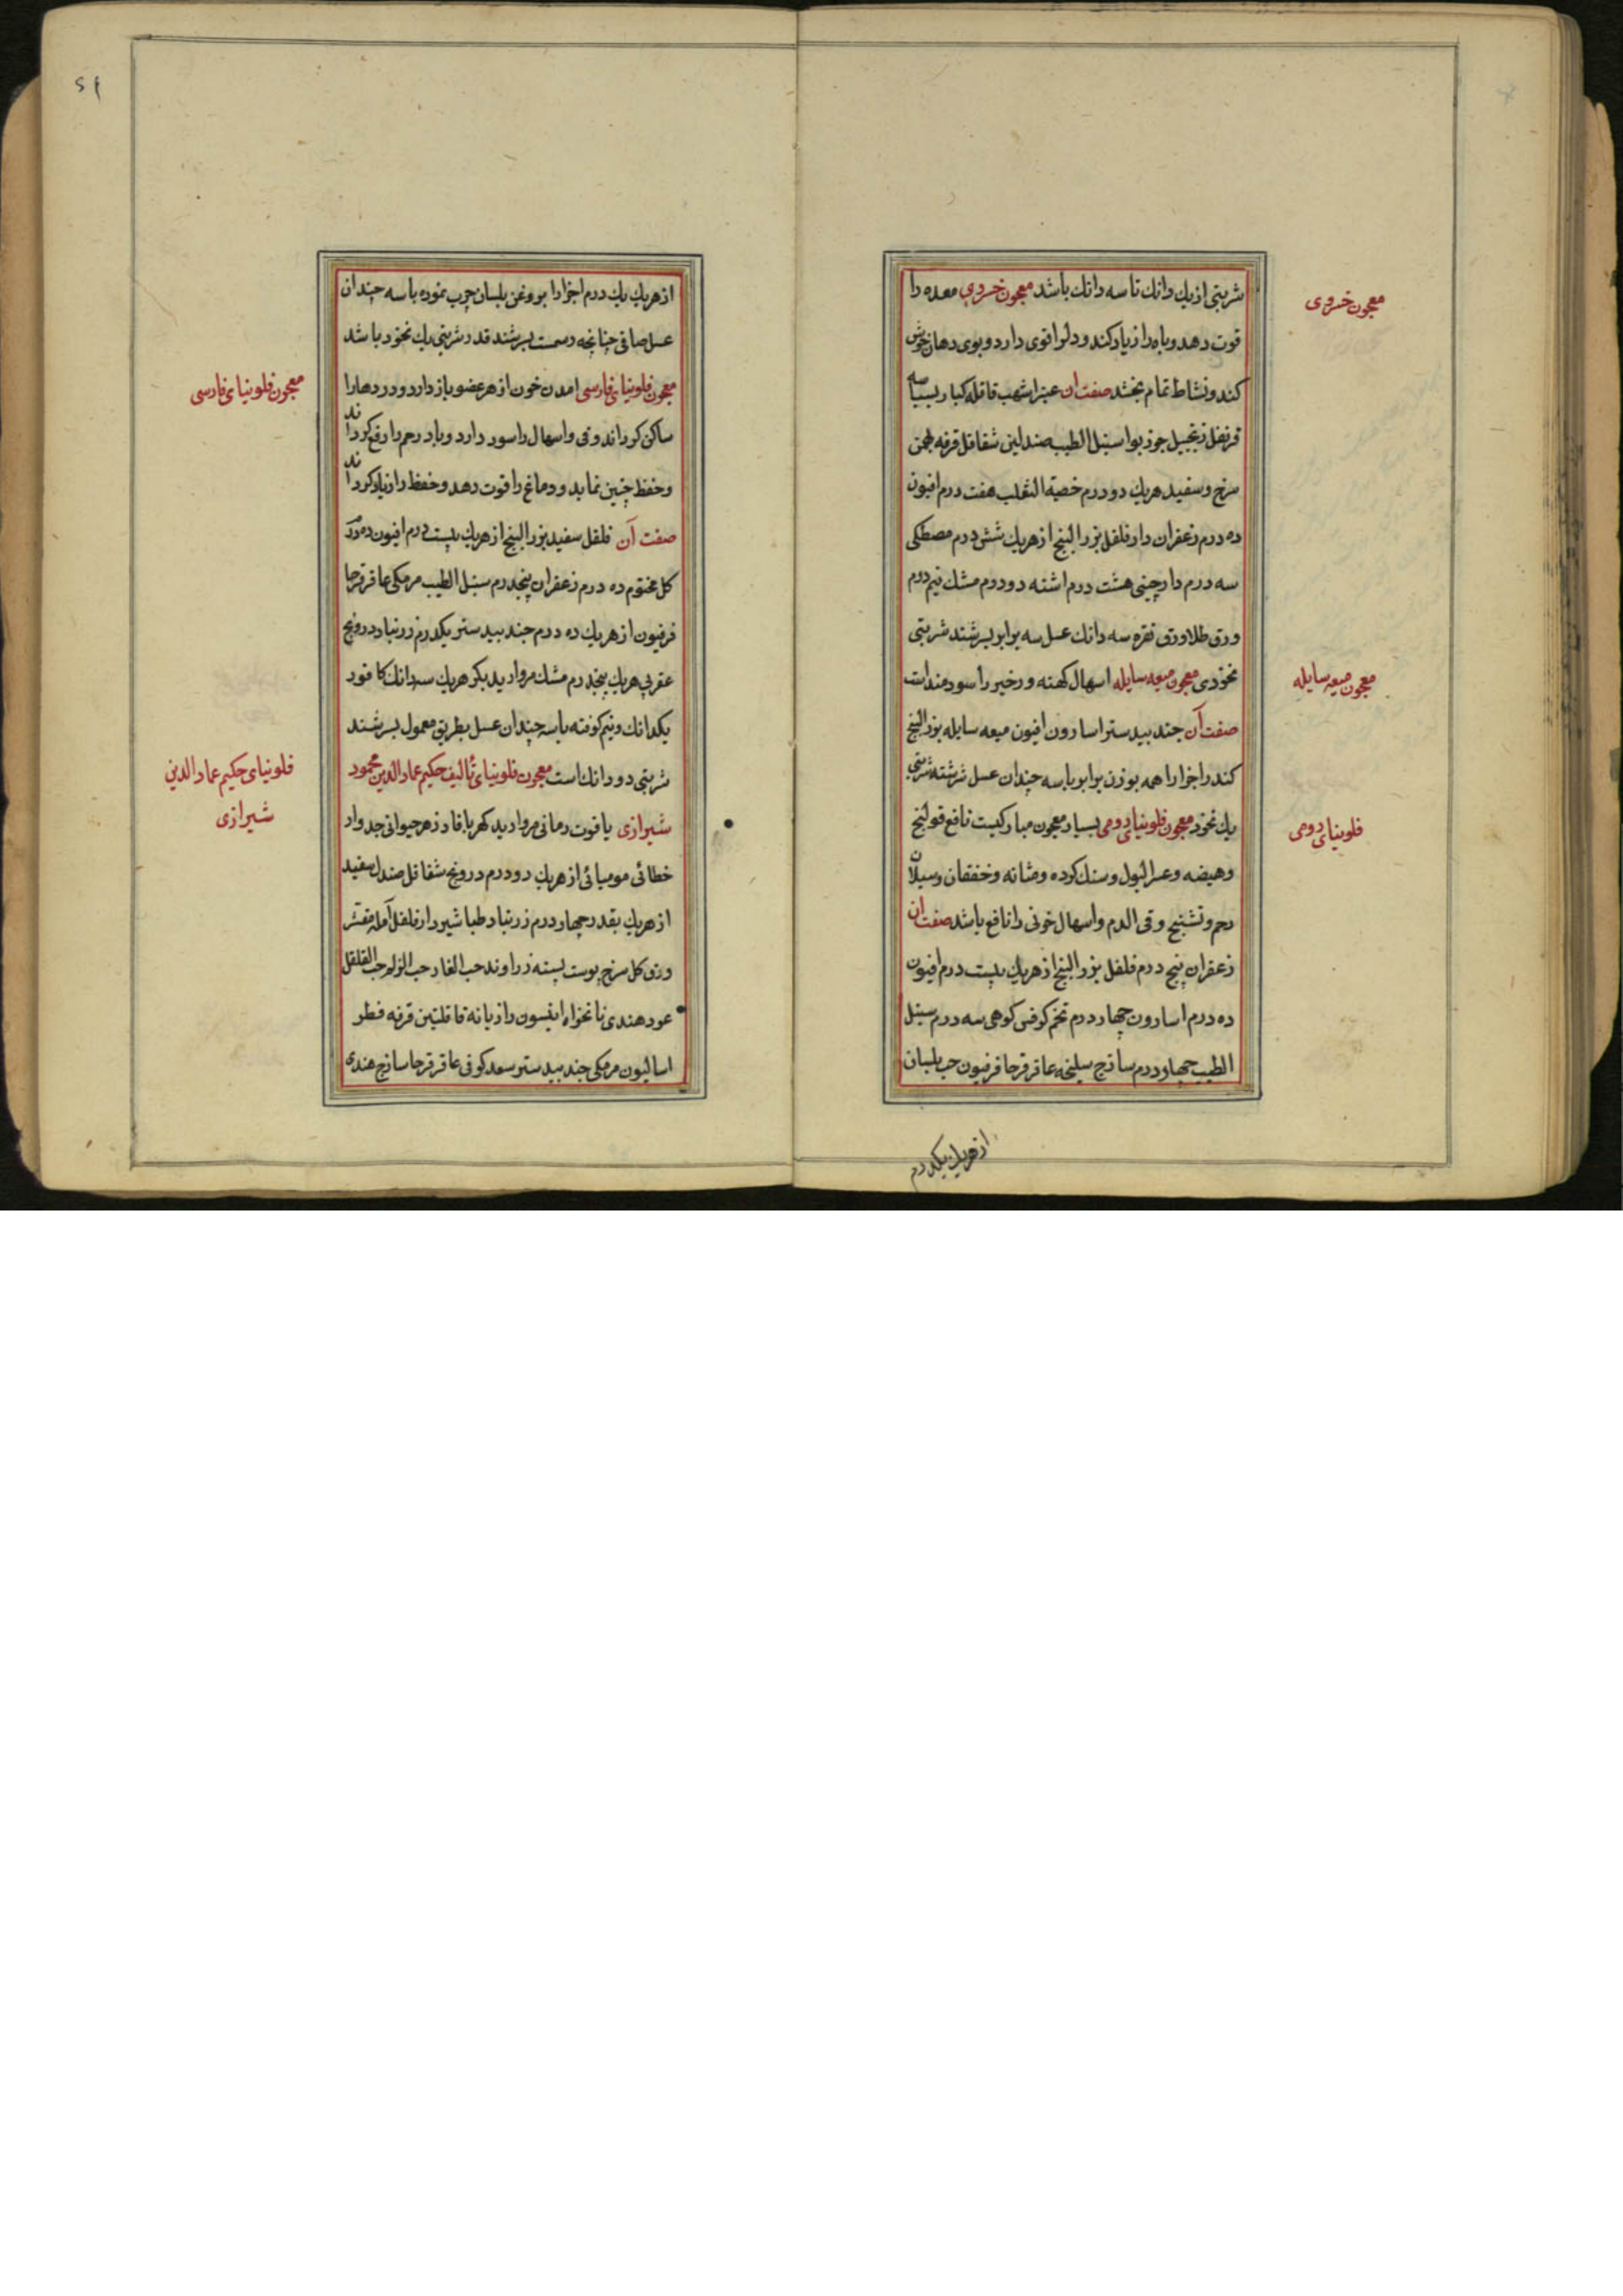 شربتی از یك دانك تا سه دانك باشد معجون خسروی معده را
معجون خسروی
قوت دهد و باه را زیاد کند و دل را قوی دارد و بوی دهان خوش
کند و نشاط تمام بخشد صفت ان عنبر اشهب قاقله کبار بسباسه
قرنفل زنجبیل جوز بوا سنبل الطیب صندلین شقاقل قرفه بهمن
سرخ و سفید هریك دو درم خصیة الثعلب هفت درم افیون
ده درم زعفران دار فلفل بزر البنج از هریك شش درم مصطکی
سه درم دارچینی هشت درم اشنه دو درم مشك نیم درم
ورق طلا ورق نقره سه دانك عسل سه برابر بسرشند شربتی
نخودی معجون میعه سایله اسهال کهنه و زخیر را سودمند است
معجون میعه سایله
صفت آن جند بیدستر اسارون افیون میعه سایله بزر البنج
کندر اجزا را همه بوزن برابر با سه چندان عسل سرشته شربتی
یك نخود معجون فلونیای رومی بسیار معجون مبارکیست نافع قولنج
فلونیای رومی
وهیضه وعسر البول وسنك کرده ومثانه وخفقان وسیلان
رحم وتشنج وقی الدم واسهال خونی را نافع باشد صفت ان
زعفران پنج درم فلفل بزر البنج از هریك بیست درم افیون
ده درم اسارون چهار درم تخم کرفس کوهی سه درم سنبل
الطیب چهار درم ساذج سلیخه عاقرقرحا فرفیون حب بلسان
از هریك یکدرم
۶۱
از هریك یك درم اجزا را بروغن بلسان چرب نموده با سه چندان
عسل صافی چنانچه رسمست بسرشند قدر شربتی یك نخود باشد
معجون فلونیای فارسی امدن خون از هر عضو باز دارد و دردها را
معجون فلونیای فارسی
ساکن کرداند وقی واسهال را سود دارد وباد رحم را رفع کرداند
وحفظ جنین نماید ودماغ را قوت دهد وحفظ را زیاد کرداند
صفت آن فلفل سفید بزر البنج از هریك بیست درم افیون ده درم
کل مختوم ده درم زعفران پنجدرم سنبل الطیب مرمکی عاقرقرحا
فرفیون از هریك ده درم جند بیدستر یکدرم زرنباد درونج
عقربی هریك پنجدرم مشك مروارید بکر هریك سه دانك کافور
یکدانك ونیم کوفته با سه چندان عسل بطریق معمول بسرشند
شربتی دو دانك است معجون فلونیای تألیف حکیم عماد الدین محمود
فلونیای حکیم عماد الدین
شیرازی
شیرازی یاقوت رمانی مروارید کهربا فادزهر حیوانی جدوار
خطائی مومیائی از هریك دو درم درونج شقاقل صندل سفید
از هریك بقدر چهار درم زرنباد طباشیر دار فلفل آمله مقشر
ورق کل سرخ پوست پسته زراوند حب الغار حب الزلم حب القلقل
عود هندی نانخواه انیسون رازیانه قاقلتین قرفه فطر
اسالیون مرمکی جند بیدستر سعد کوفی عاقرقرحا ساذج هندی